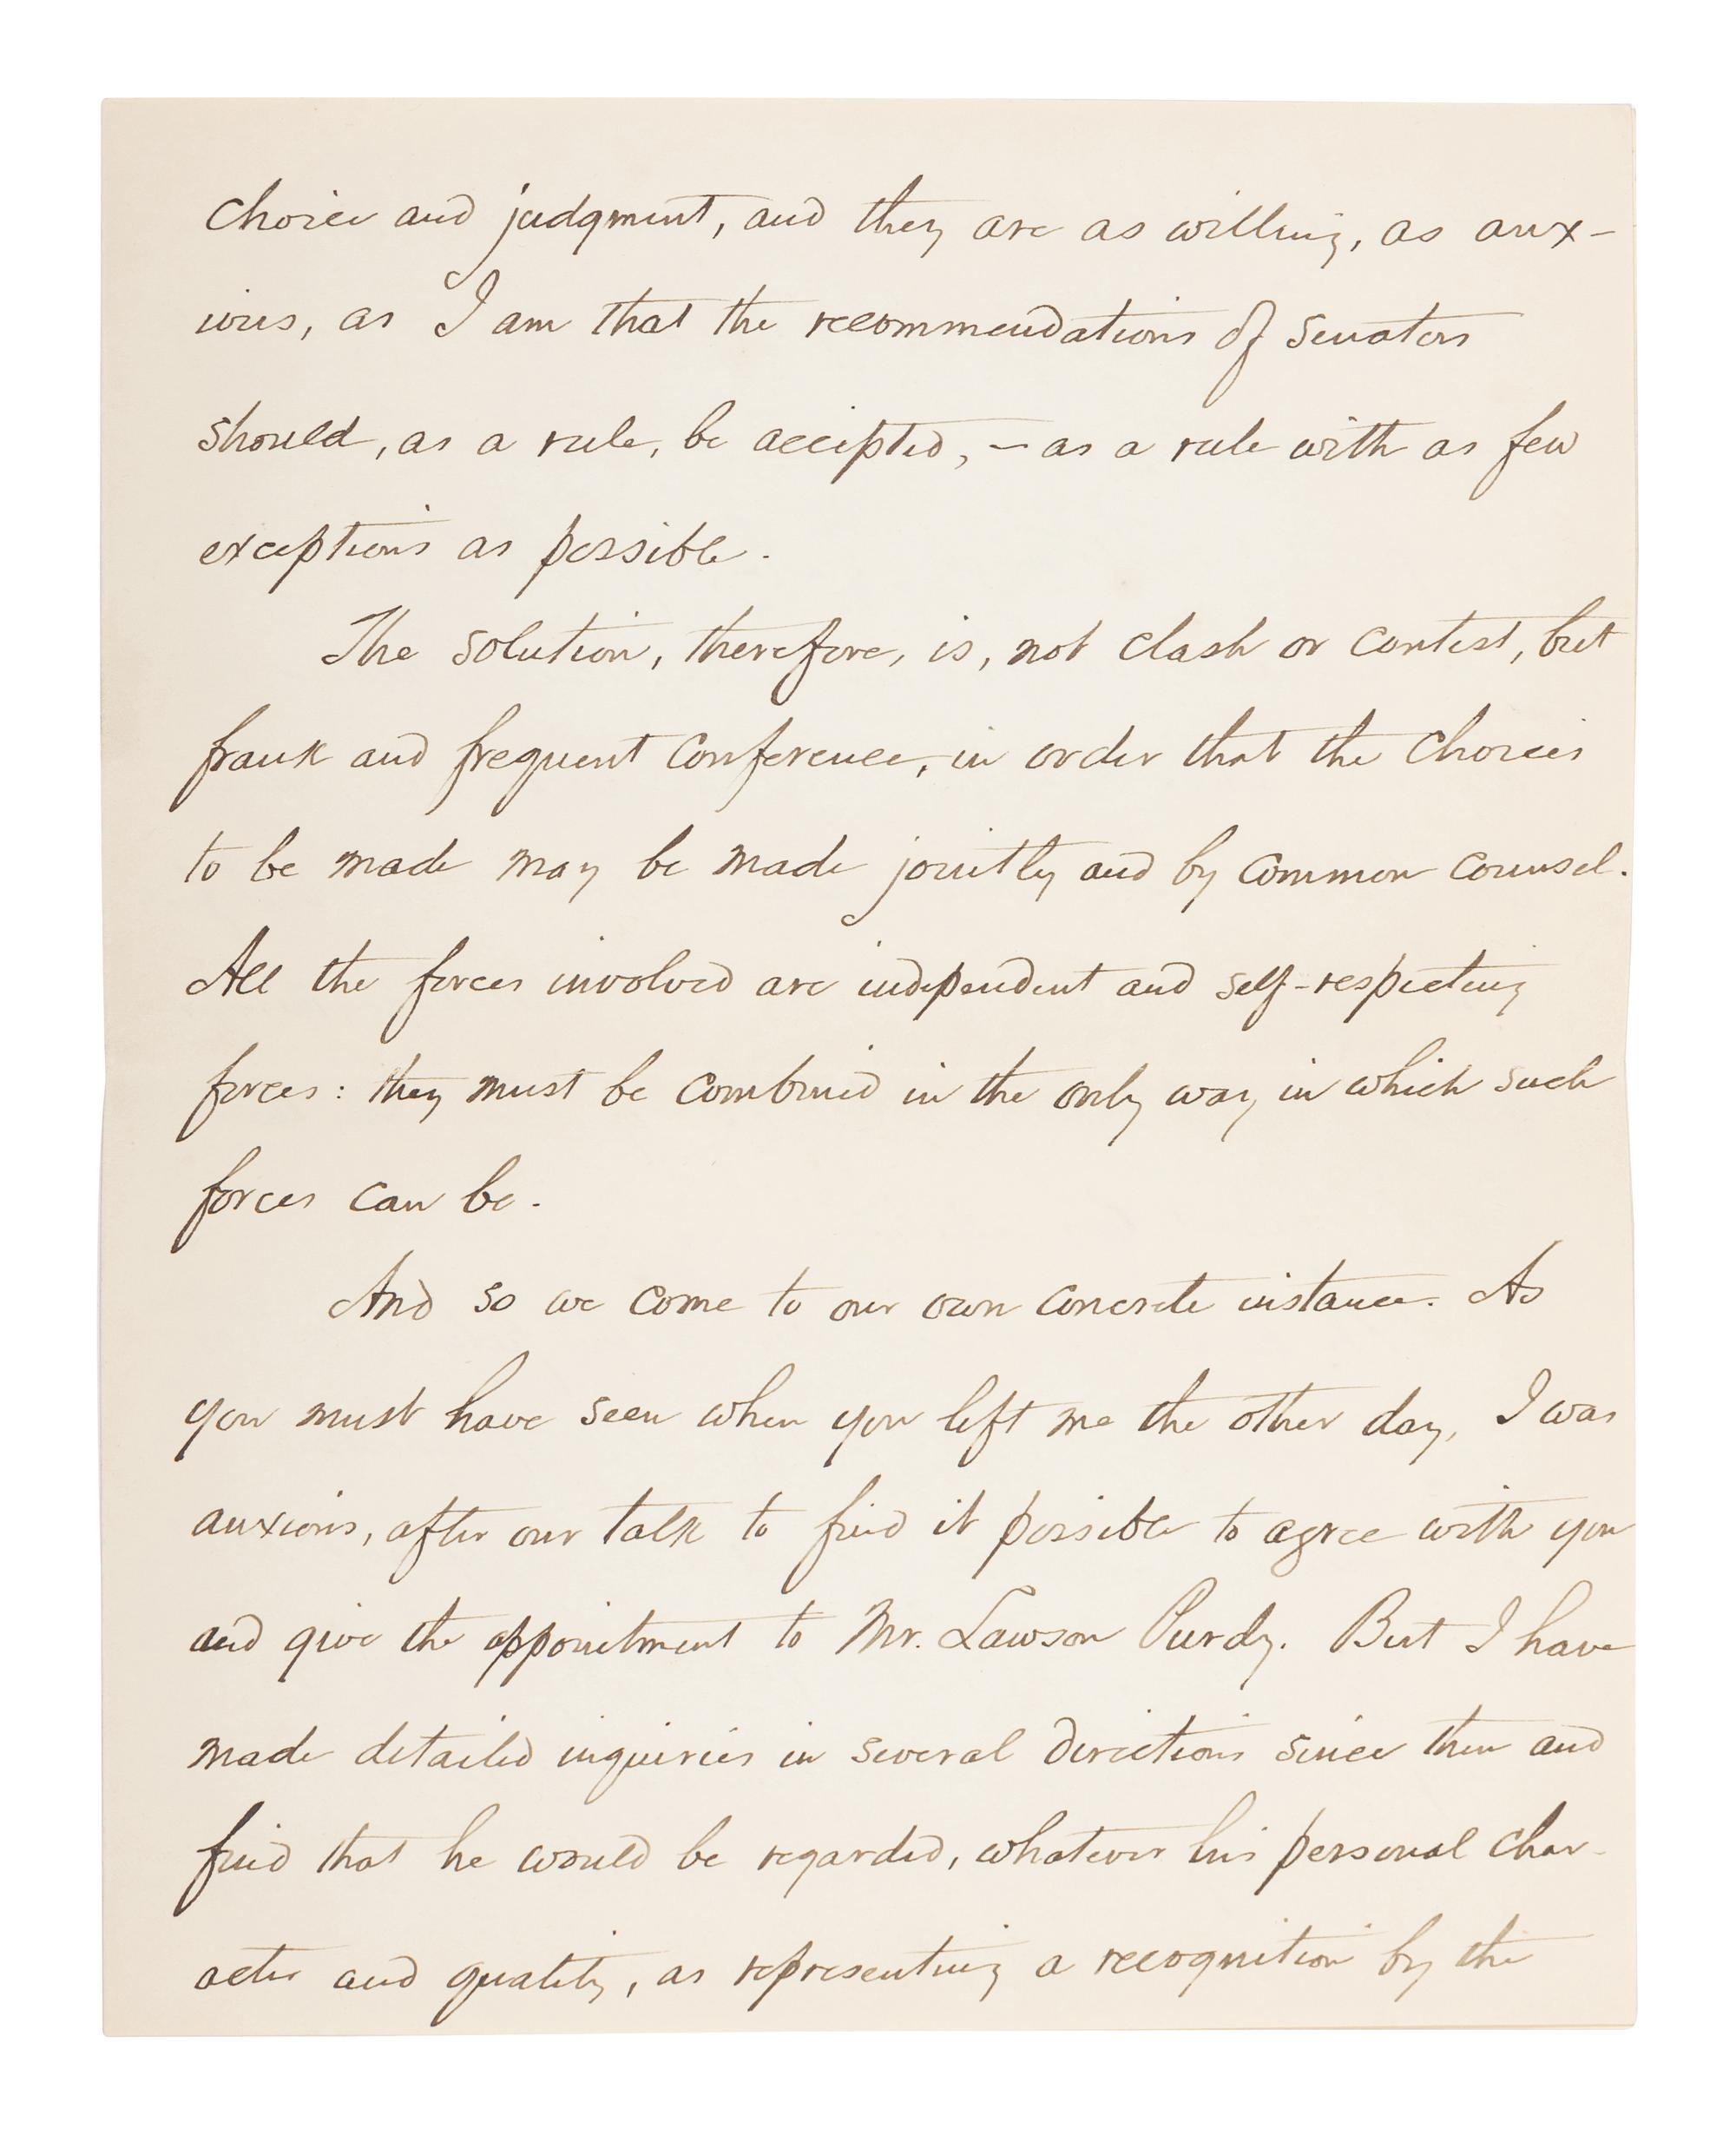 choice and judgment, and they are as willing, as anx-
ious, as I am that the recommendations of Senators
should, as a rule, be accepted, – as a rule with as few
exceptions as possible.
The solution, therefore, is, not clash or contest, but
frank and frequent conference, in order that the choices
to be made may be made jointly and by common counsel.
All the forces involved are independent and self-respecting
forces: they must be combined in the only way in which such
forces can be.
And so we come to our own concrete instance. As
you must have seen when you left me the other day, I was
anxious, after our talk to find it possible to agree with you
and give the appointment to Mr. Lawson Purdy. But I have
made detailed inquiries in several directions since then and
find that he would be regarded, whatever his personal char-
acter and quality, as representing a recognition by the